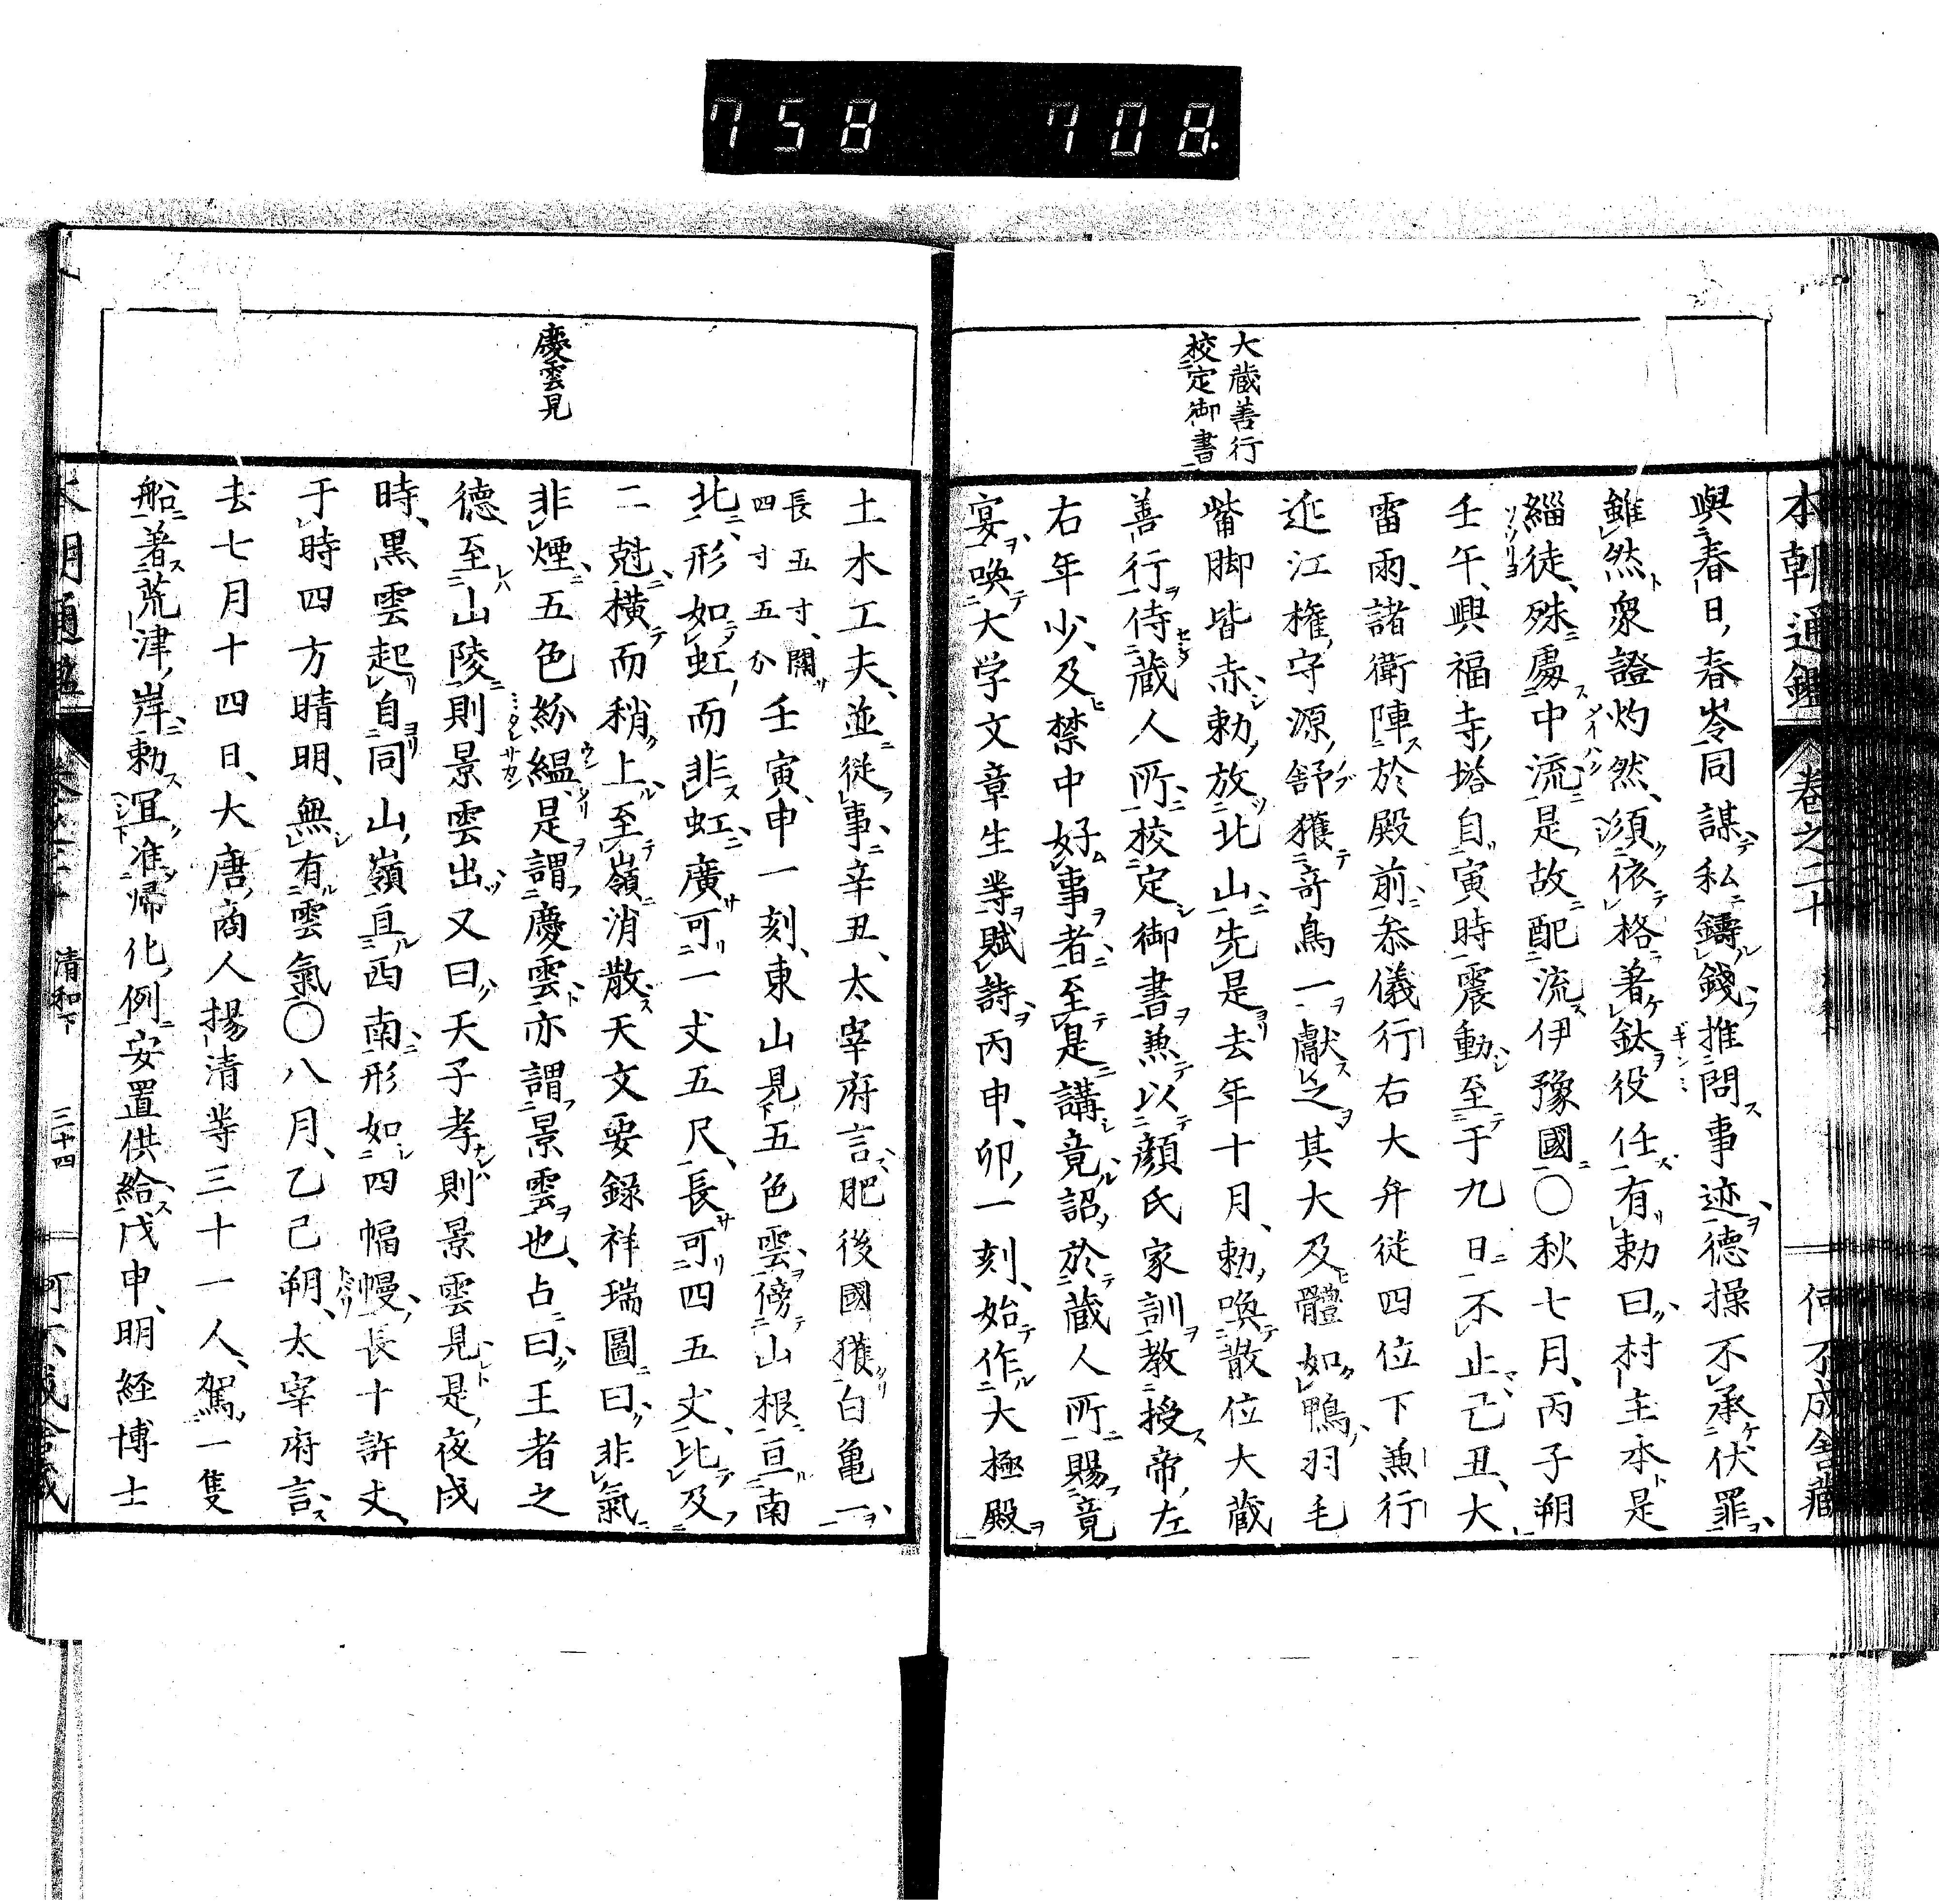 758 708.
本朝通鑑 卷之二十 何不成舎蔵
大蔵善行
校定御書
與春日春岑同謀私鑄錢推問事迹德操不承伏罪
雖然衆證灼然須依格著鈦役任有勅曰村主本是
緇徒殊處中流是故配流伊豫國〇秋七月丙子朔
壬午興福寺塔自寅時震動至于九日不止己丑大
雷雨諸衛陣於殿前叅儀行右大弁從四位下兼行
近江權守源舒獲奇鳥一獻之其大及體如鴨羽毛
觜脚皆赤勅放北山先是去年十月勅喚散位大蔵
善行侍蔵人所校定御書兼以顔氏家訓教授帝左
右年少及禁中好事者至是講竟詔於蔵人所賜竟
宴喚大学文章生等賦詩丙申卯一刻始作大極殿
慶雲見
土木工夫並從事辛丑太宰府言肥後國獲白亀一
長五寸闊
四寸五分
壬寅申一刻東山見五色雲傍山根亘南
北形如虹而非虹廣可一丈五尺長可四五丈比及
二尅横而稍上至嶺消散天文要録祥瑞圖曰非氣
非煙五色紛縕是謂慶雲亦謂景雲也占曰王者之
德至山陵則景雲出又曰天子孝則景雲見是夜戌
時黒雲起自同山嶺亘西南形如四幅幔長十許丈
于時四方晴明無有雲氣〇八月乙己朔太宰府言
去七月十四日大唐商人揚清等三十一人駕一隻
船著荒津岸勅冝准帰化例安置供給戊申明経博士
本朝通鑑 清和下 三十四